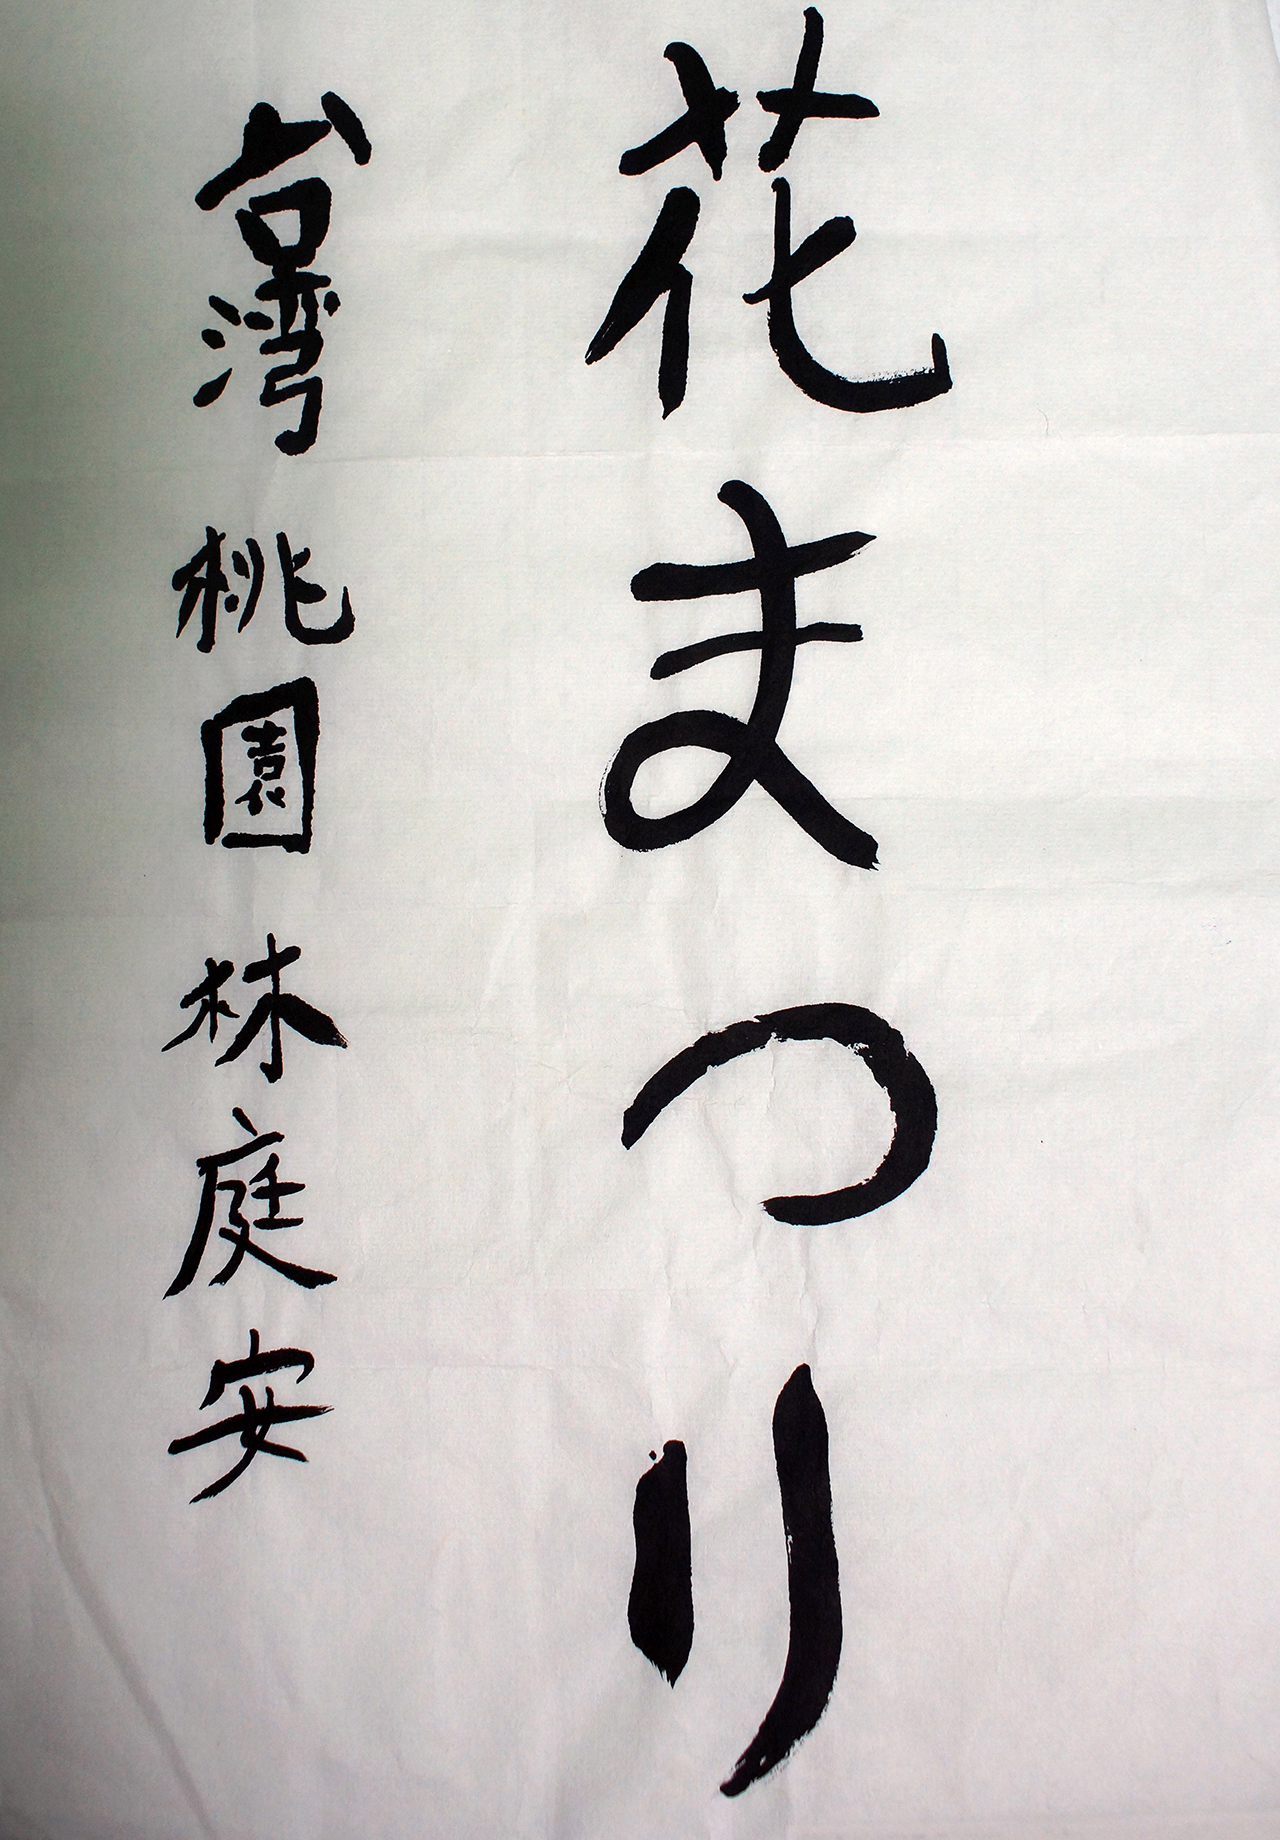 花まつり
台湾 桃園 林庭安